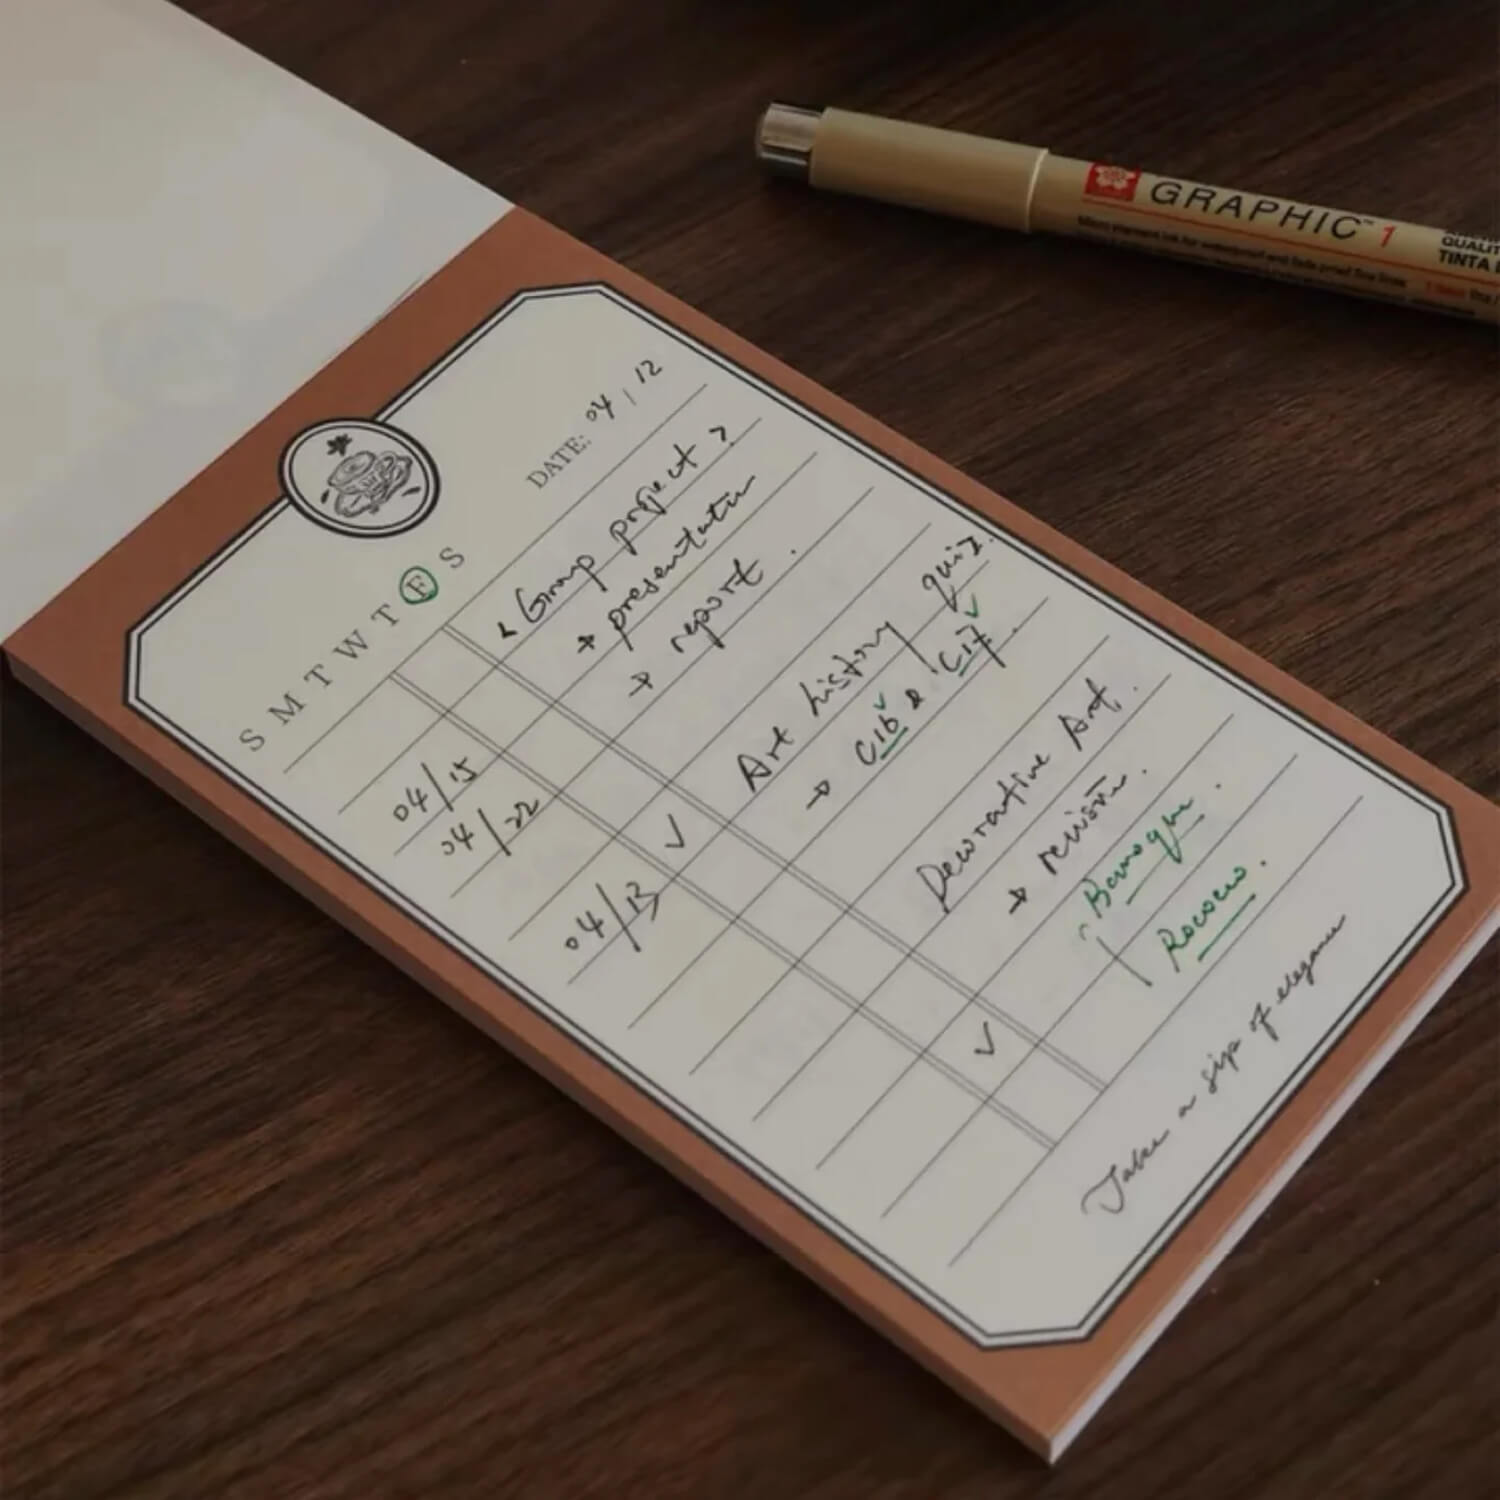 DATE: 04 / 12
S M T W T F S
< Group project >
04/15 → presentation
04/22 → report.
04/13 ✓ Art history quiz.
→ C16 & C17.
Decorative Art.
→ revision.
✓ Baroque.
Rococo.
Take a sip of elegance
GRAPHIC™ 1
QUALIT
TINTA